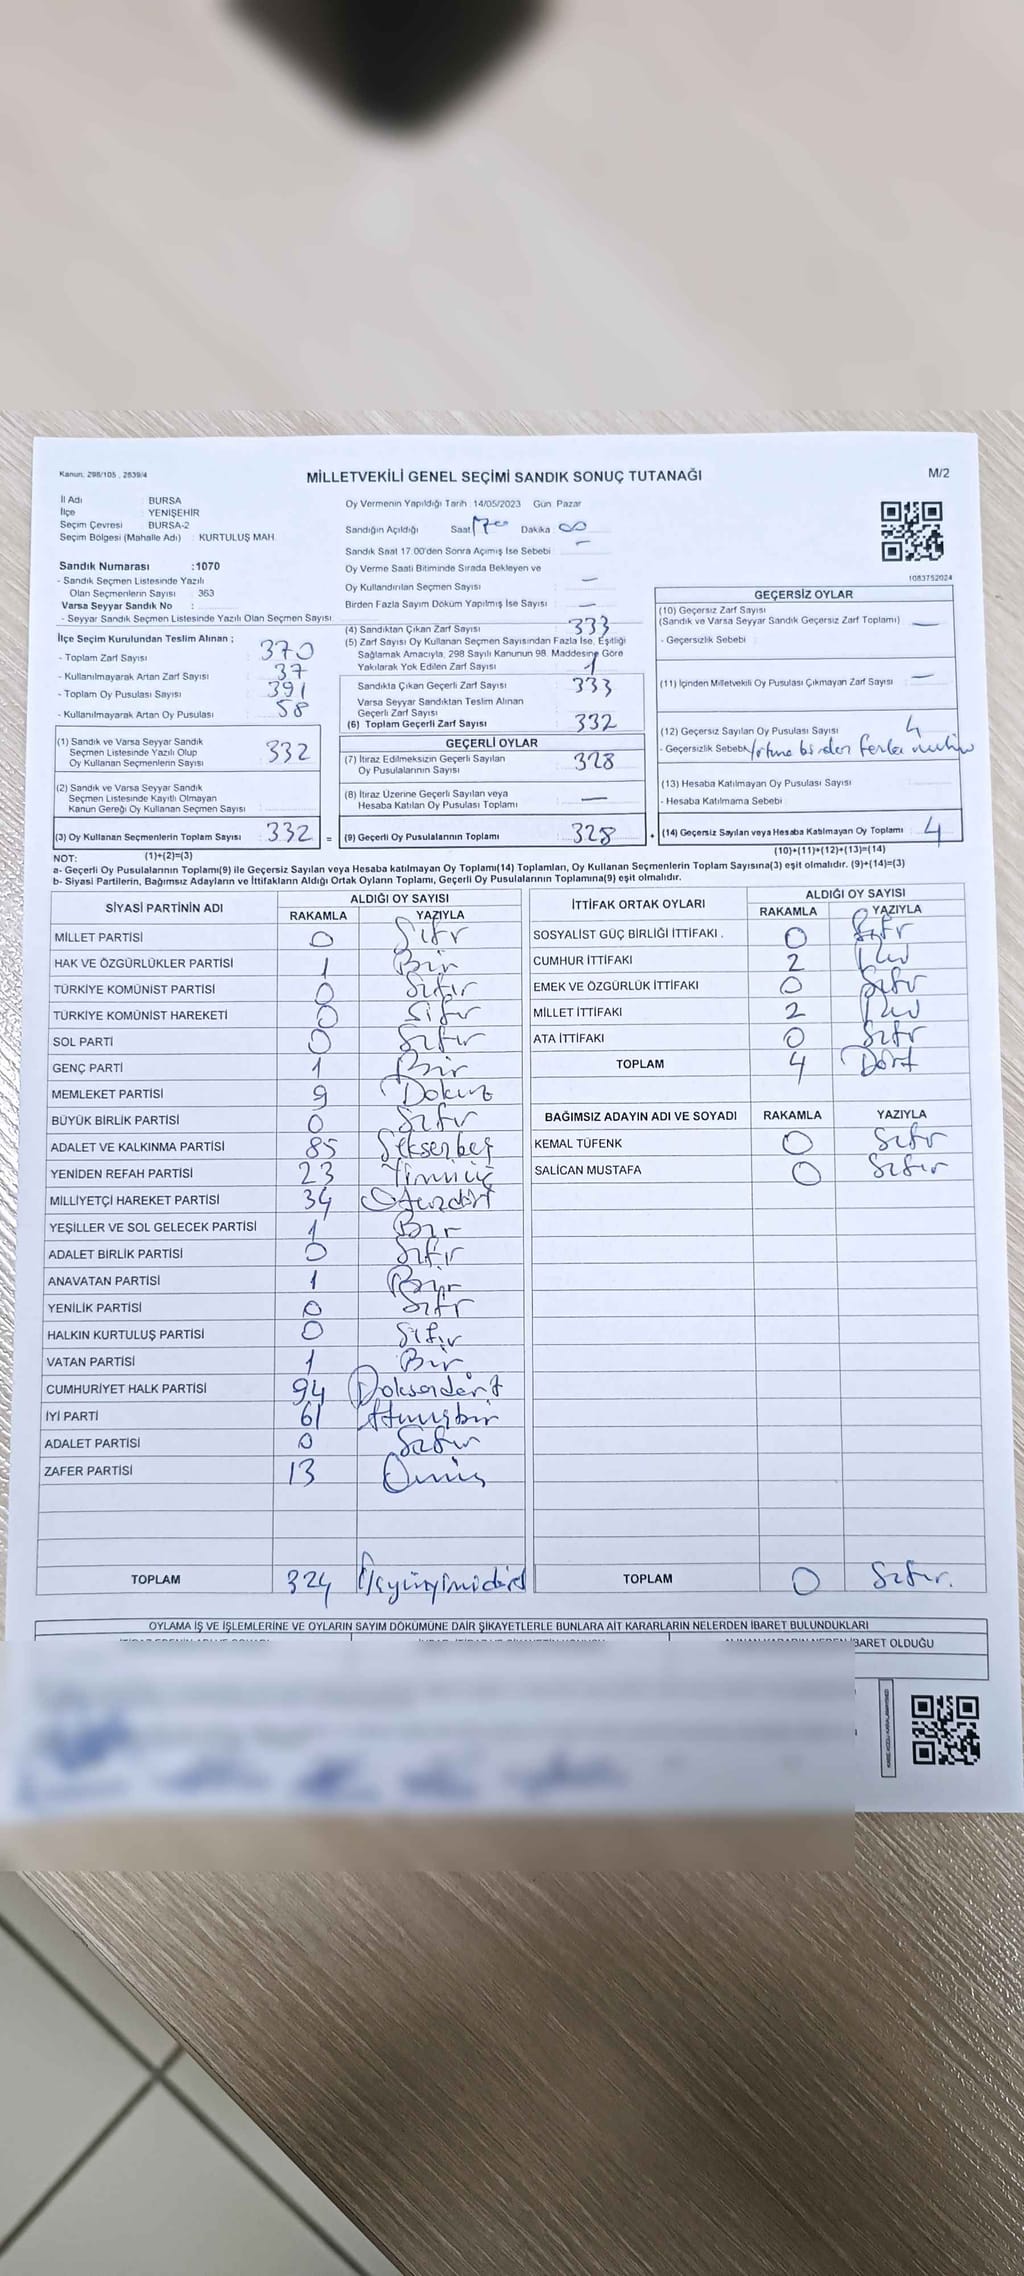 Kanun, 298/105 , 2839/4
MİLLETVEKİLİ GENEL SEÇİMİ SANDIK SONUÇ TUTANAĞI
M/2
İl Adı : BURSA
İlçe : YENİŞEHİR
Seçim Çevresi : BURSA-2
Seçim Bölgesi (Mahalle Adı) : KURTULUŞ MAH.
Oy Vermenin Yapıldığı Tarih : 14/05/2023 Gün : Pazar
Sandığın Açıldığı Saat Dakika
Sandık Saat 17:00'den Sonra Açılmış İse Sebebi : —
Oy Verme Saati Bitiminde Sırada Bekleyen ve
Oy Kullandırılan Seçmen Sayısı : —
Birden Fazla Sayım Döküm Yapılmış İse Sayısı : —
1083752024
Sandık Numarası :1070
- Sandık Seçmen Listesinde Yazılı
Olan Seçmenlerin Sayısı : 363
Varsa Seyyar Sandık No :
- Seyyar Sandık Seçmen Listesinde Yazılı Olan Seçmen Sayısı :
İlçe Seçim Kurulundan Teslim Alınan ;
- Toplam Zarf Sayısı : 370
- Kullanılmayarak Artan Zarf Sayısı : 37
- Toplam Oy Pusulası Sayısı : 391
- Kullanılmayarak Artan Oy Pusulası : 58
(1) Sandık ve Varsa Seyyar Sandık
Seçmen Listesinde Yazılı Olup
Oy Kullanan Seçmenlerin Sayısı : 332
(2) Sandık ve Varsa Seyyar Sandık
Seçmen Listesinde Kayıtlı Olmayan
Kanun Gereği Oy Kullanan Seçmen Sayısı :
(3) Oy Kullanan Seçmenlerin Toplam Sayısı : 332 =
(1)+(2)=(3)
(4) Sandıktan Çıkan Zarf Sayısı : 333
(5) Zarf Sayısı Oy Kullanan Seçmen Sayısından Fazla İse, Eşitliği
Sağlamak Amacıyla, 298 Sayılı Kanunun 98. Maddesine Göre
Yakılarak Yok Edilen Zarf Sayısı : 1
Sandıkta Çıkan Geçerli Zarf Sayısı : 333
Varsa Seyyar Sandıktan Teslim Alınan
Geçerli Zarf Sayısı :
(6) Toplam Geçerli Zarf Sayısı : 332
GEÇERLİ OYLAR
(7) İtiraz Edilmeksizin Geçerli Sayılan
Oy Pusulalarının Sayısı : 328
(8) İtiraz Üzerine Geçerli Sayılan veya
Hesaba Katılan Oy Pusulası Toplamı : —
(9) Geçerli Oy Pusulalarının Toplamı : 328 +
GEÇERSİZ OYLAR
(10) Geçersiz Zarf Sayısı
(Sandık ve Varsa Seyyar Sandık Geçersiz Zarf Toplamı) : —
- Geçersizlik Sebebi :
(11) İçinden Milletvekili Oy Pusulası Çıkmayan Zarf Sayısı : —
(12) Geçersiz Sayılan Oy Pusulası Sayısı : 4
- Geçersizlik Sebebi birden fazla mühür
(13) Hesaba Katılmayan Oy Pusulası Sayısı :
- Hesaba Katılmama Sebebi :
(14) Geçersiz Sayılan veya Hesaba Katılmayan Oy Toplamı : 4
(10)+(11)+(12)+(13)=(14)
NOT:
a- Geçerli Oy Pusulalarının Toplamı(9) ile Geçersiz Sayılan veya Hesaba katılmayan Oy Toplamı(14) Toplamları, Oy Kullanan Seçmenlerin Toplam Sayısına(3) eşit olmalıdır. (9)+(14)=(3)
b- Siyasi Partilerin, Bağımsız Adayların ve İttifakların Aldığı Ortak Oyların Toplamı, Geçerli Oy Pusulalarının Toplamına(9) eşit olmalıdır.
SİYASİ PARTİNİN ADI ALDIĞI OY SAYISI
RAKAMLA YAZIYLA
MİLLET PARTİSİ 0 Sıfır
HAK VE ÖZGÜRLÜKLER PARTİSİ 1 Bir
TÜRKİYE KOMÜNİST PARTİSİ 0 Sıfır
TÜRKİYE KOMÜNİST HAREKETİ 0 Sıfır
SOL PARTİ 0 Sıfır
GENÇ PARTİ 1 Bir
MEMLEKET PARTİSİ 9 Dokuz
BÜYÜK BİRLİK PARTİSİ 0 Sıfır
ADALET VE KALKINMA PARTİSİ 85 Seksenbeş
YENİDEN REFAH PARTİSİ 23 Yirmiüç
MİLLİYETÇİ HAREKET PARTİSİ 34 Otuzdört
YEŞİLLER VE SOL GELECEK PARTİSİ 1 Bir
ADALET BİRLİK PARTİSİ 0 Sıfır
ANAVATAN PARTİSİ 1 Bir
YENİLİK PARTİSİ 0 Sıfır
HALKIN KURTULUŞ PARTİSİ 0 Sıfır
VATAN PARTİSİ 1 Bir
CUMHURİYET HALK PARTİSİ 94 Doksandört
İYİ PARTİ 61 Atmışbir
ADALET PARTİSİ 0 Sıfır
ZAFER PARTİSİ 13 Onüç
TOPLAM 324 Üçyüzyirmidört
İTTİFAK ORTAK OYLARI ALDIĞI OY SAYISI
RAKAMLA YAZIYLA
SOSYALİST GÜÇ BİRLİĞİ İTTİFAKI . 0 Sıfır
CUMHUR İTTİFAKI 2 İki
EMEK VE ÖZGÜRLÜK İTTİFAKI 0 Sıfır
MİLLET İTTİFAKI 2 İki
ATA İTTİFAKI 0 Sıfır
TOPLAM 4 Dört
BAĞIMSIZ ADAYIN ADI VE SOYADI RAKAMLA YAZIYLA
KEMAL TÜFENK 0 Sıfır
SALİCAN MUSTAFA 0 Sıfır
TOPLAM 0 Sıfır.
OYLAMA İŞ VE İŞLEMLERİNE VE OYLARIN SAYIM DÖKÜMÜNE DAİR ŞİKAYETLERLE BUNLARA AİT KARARLARIN NELERDEN İBARET BULUNDUKLARI
İBARET OLDUĞU